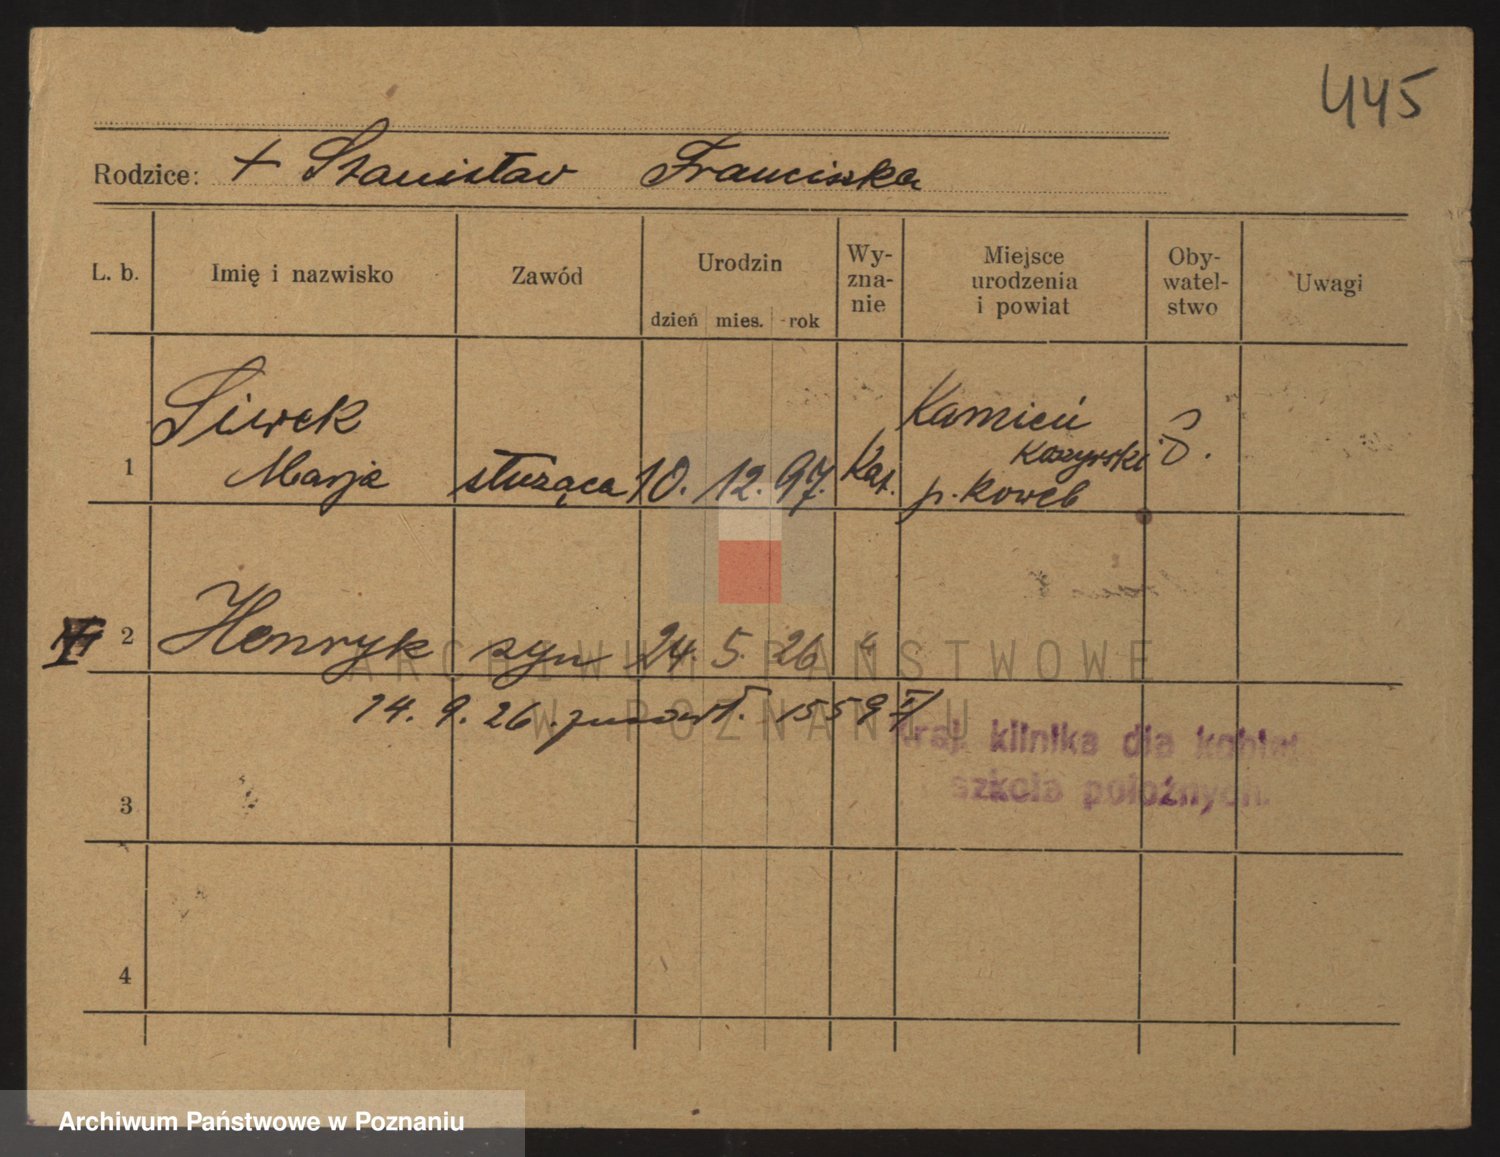 445
Rodzice: + Stanisław Franciszka
L. b. Imię i nazwisko Zawód Urodzin dzień mies. rok Wy-zna-nie Miejsce urodzenia i powiat Oby-watel-stwo Uwagi
Siwek Kamień
1 Marja służąca 10. 12. 97. Kat. Koszyrski
p. Kowel
2 Henryk syn 24. 5. 26 "
14. 9. 26. 1559
klinika dla kobiet
szkoła położnych
3
4
ARCHIWUM PAŃSTWOWE
W POZNANIU
Archiwum Państwowe w Poznaniu